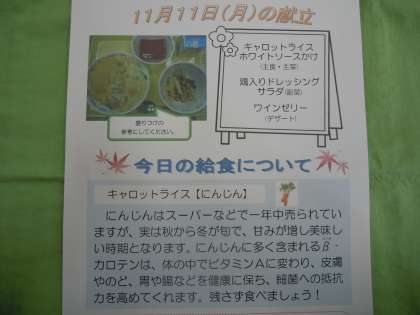 11月11日(月)の献立
キャロットライス
ホワイトソースかけ
(主食・主菜)
鶏入りドレッシング
サラダ(副菜)
ワインゼリー
(デザート)
盛りつけの
参考にしてください。
今日の給食について
キャロットライス【にんじん】
にんじんはスーパーなどで一年中売られてい
ますが、実は秋から冬が旬で、甘みが増し美味し
い時期となります。にんじんに多く含まれるβ‐
カロテンは、体の中でビタミンAに変わり、皮膚
やのど、胃や腸などを健康に保ち、細菌への抵抗
力を高めてくれます。残さず食べましょう！